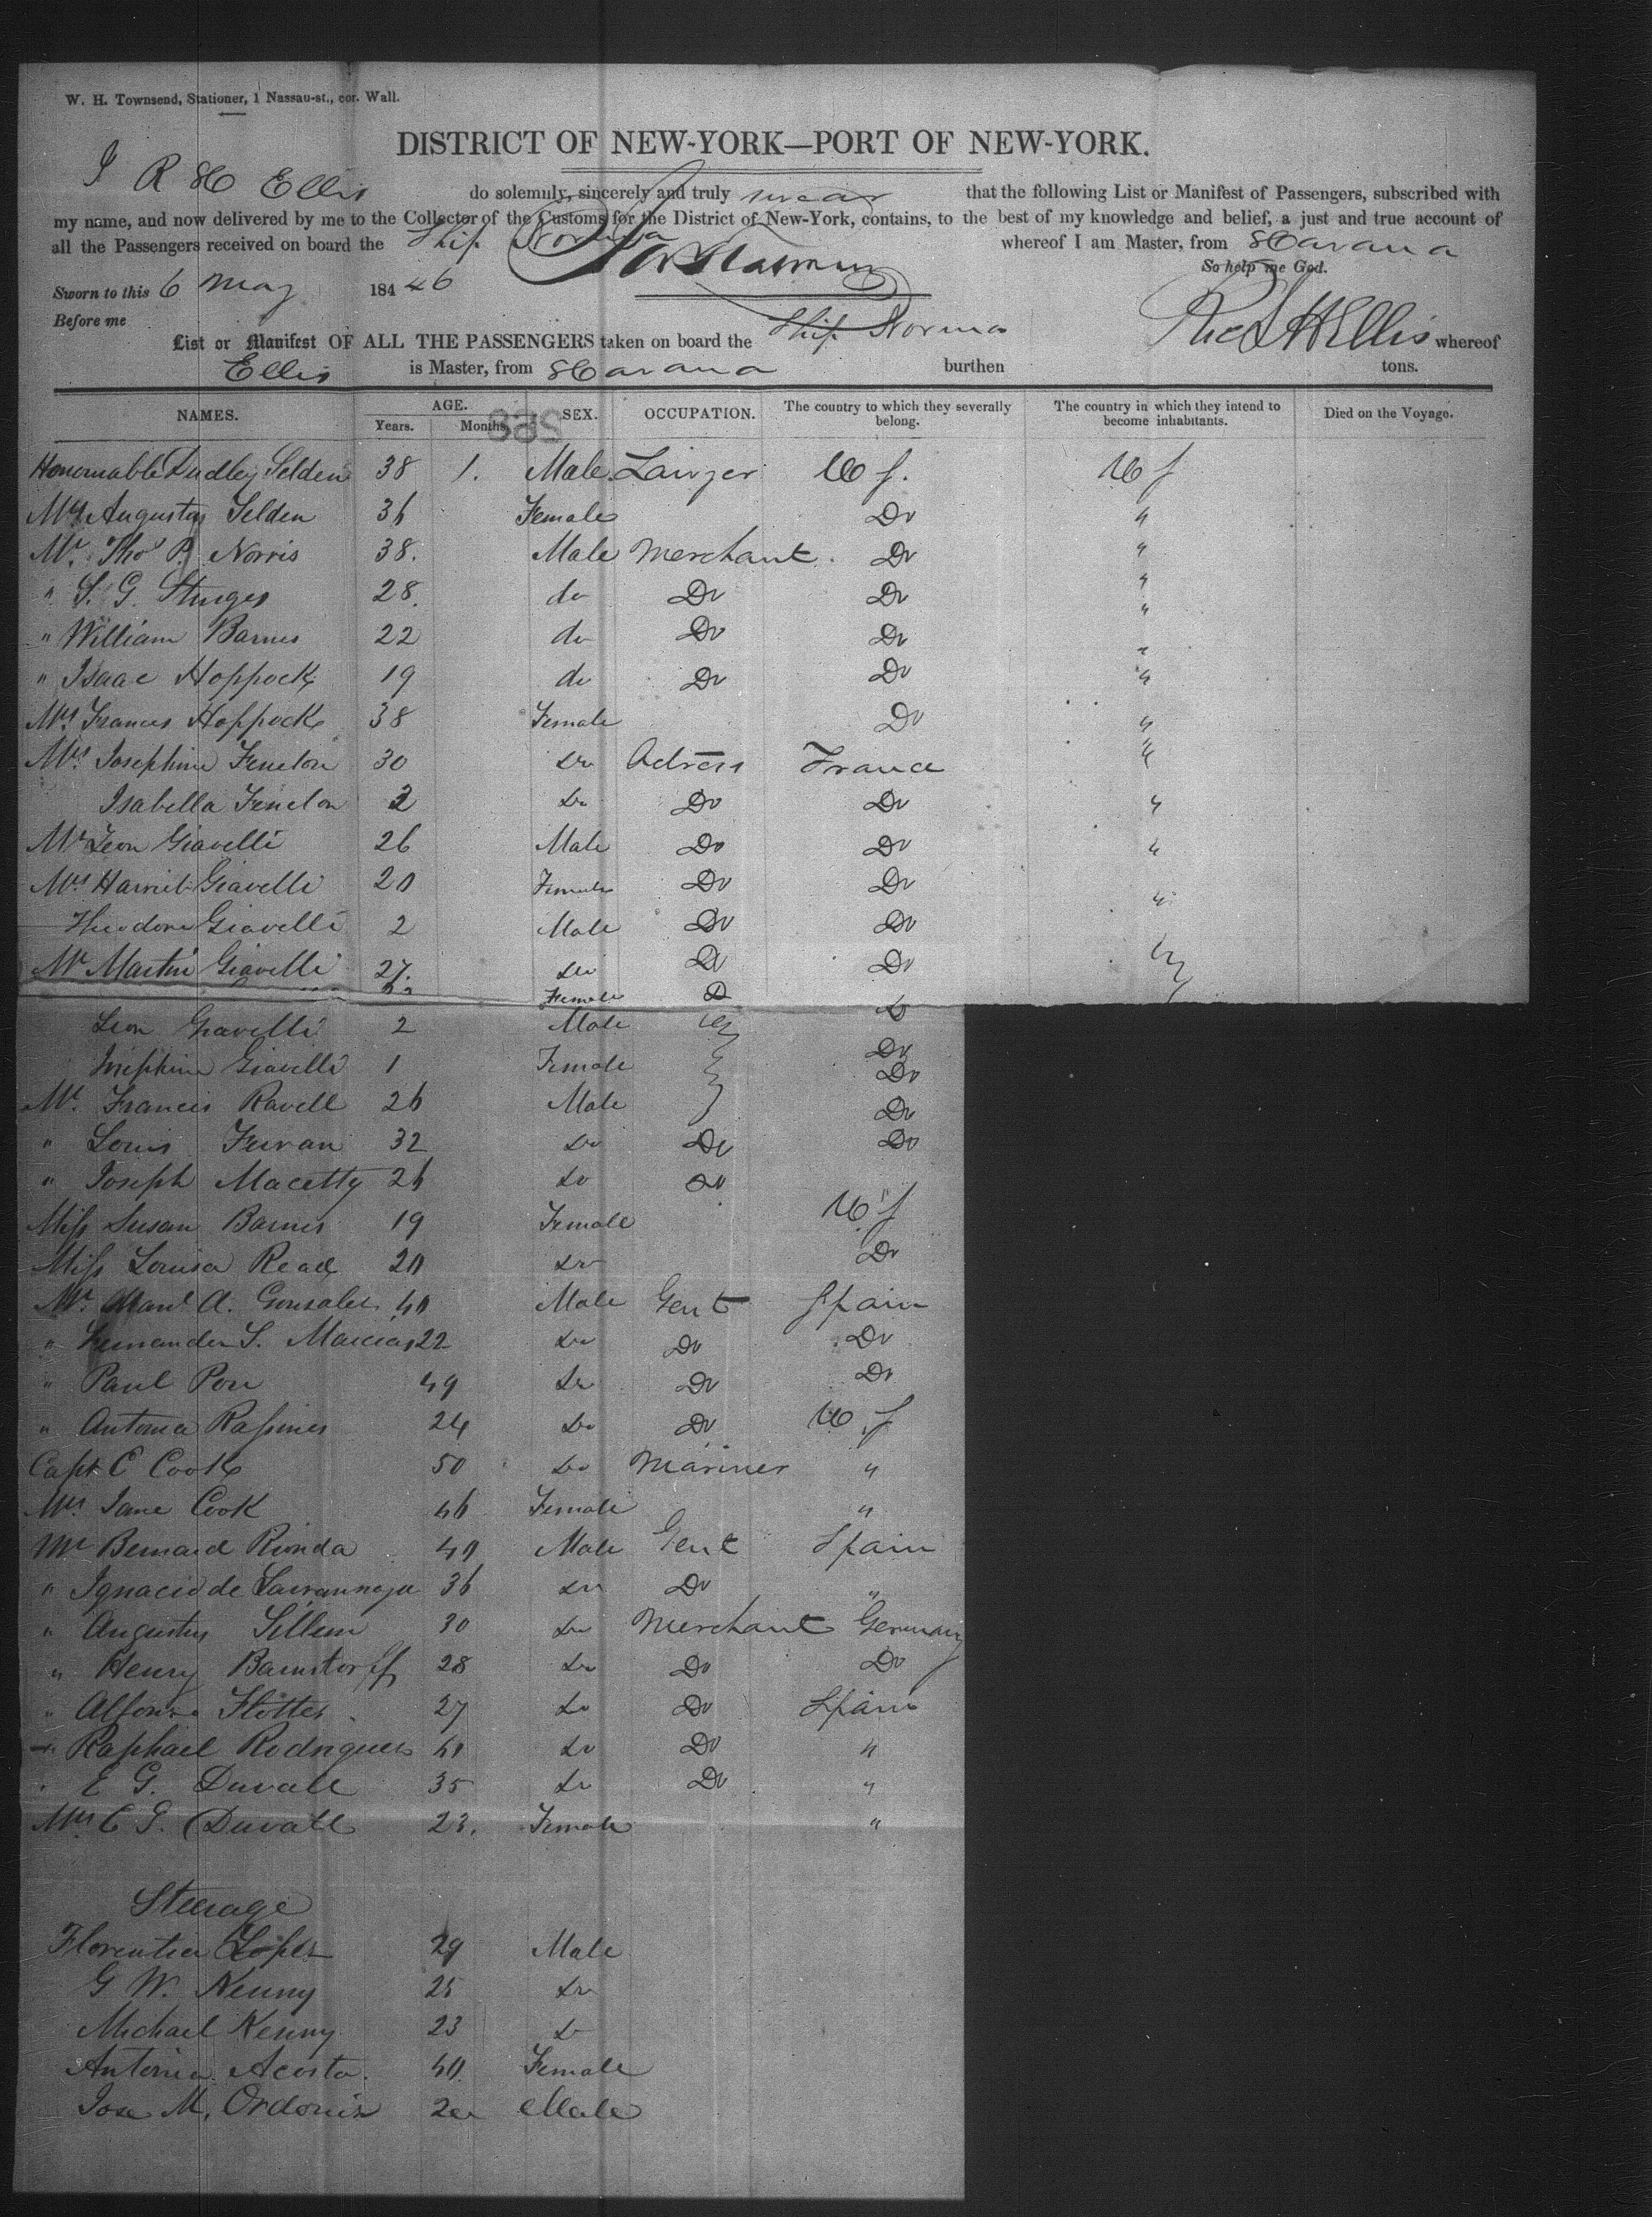 W. H. Townsend, Stationer, 1 Nassau-st., cor. Wall.
DISTRICT OF NEW-YORK—PORT OF NEW-YORK.
I R H Ellis do solemnly, sincerely and truly swear that the following List or Manifest of Passengers, subscribed with
my name, and now delivered by me to the Collector of the Customs for the District of New-York, contains, to the best of my knowledge and belief, a just and true account of
all the Passengers received on board the Ship Norma whereof I am Master, from Havana
So help me God.
Sworn to this 6 May 184 46
Before me
Richd H Ellis
List or Manifest OF ALL THE PASSENGERS taken on board the Ship Norma whereof
Ellis is Master, from Havana burthen tons.
NAMES. AGE. SEX. OCCUPATION. The country to which they severally belong. The country in which they intend to become inhabitants. Died on the Voyage.
Years. Months.
Honourable Dudley Selden 38 1. Male Lawyer U S. U S
Mrs Augustus Selden 36 Female Do "
Mr. Thos P. Norris 38. Male Merchant. Do "
" S. G. Sturges 28. do Do Do "
" William Barnes 22 do Do Do "
" Isaac Hoppock 19 do Do Do "
Mrs Frances Hoppock 38 Female Do "
Mrs Josephine Fenelon 30 Do Actress France "
Isabella Fenelon 2 Do Do Do "
Mr Leon Giavelli 26 Male Do Do "
Mrs Harriet Giavelli 20 Female Do Do "
Theodore Giavelli 2 Male Do Do
Mr Martin Giavelli 27. Do Do Do "
Female Do Do
Leon Giavelli 2 Male " Do
Josephine Giavelli 1 Female Do
Mr. Francis Ravell 26 Male Do
" Louis Ferran 32 Do Do Do
" Joseph Macetty 26 Do Do
Miss Susan Barnes 19 Female U S
Miss Louisa Read 20 Do Do
Mr. Manl A. Gonsales 40 Male Gent Spain
" Fernander S. Marcias 22 Do Do Do
" Paul Pon 49 Do Do Do
" Antonia Rasines 24 Do Do U S
Capt C Cook 50 Do Mariner "
Mrs Jane Cook 46 Female "
Mr Bernard Rionda 40 Male Gent Spain
" Ignacio de 36 Do Do "
" Augustus Sillem 30 Do Merchant Germany
" Henry Barnstorff 28 Do Do Do
" Alfonso Flottes 27 Do Do Spain
" Raphael Rodrigues 41 Do Do "
" E G. Duvall 35 Do Do "
Mrs E G. Duvall 23. Female "
Steerage
Florentia Lopez 29 Male
G W. Kenny 25 Do
Michael Kenny 23 Do
Antonia Acosta. 40. Female
Jose M. Ordonez Male